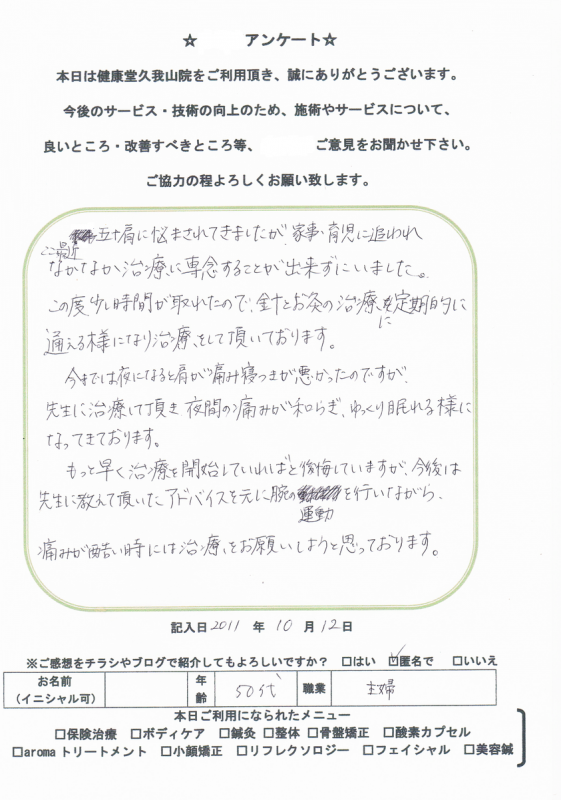 ☆ アンケート☆
本日は健康堂久我山院をご利用頂き、誠にありがとうございます。
今後のサービス・技術の向上のため、施術やサービスについて、
良いところ・改善すべきところ等、 ご意見をお聞かせ下さい。
ご協力の程よろしくお願い致します。
五十肩に悩まされてきましたが、家事・育児に追われ
ここ最近
なかなか治療に専念することが出来ずにいました。
この度少し時間が取れたので、針とお灸の治療を定期的に
に
通える様になり治療をして頂いております。
今までは夜になると肩が痛み寝つきが悪かったのですが、
先生に治療して頂き夜間の痛みが和らぎ、ゆっくり眠れる様に
なってきております。
もっと早く治療を開始していればと後悔していますが、今後は
先生に教えて頂いたアドバイスを元に腕の を行いながら、
運動
痛みが酷い時には治療をお願いしようと思っております。
記入日 2011 年 10 月 12 日
※ご感想をチラシやブログで紹介してもよろしいですか? □はい ☑匿名で □いいえ
お名前 (イニシャル可) 年齢 50代 職業 主婦
本日ご利用になられたメニュー
□保険治療 □ボディケア □鍼灸 □整体 □骨盤矯正 □酸素カプセル
□aroma トリートメント □小顔矯正 □リフレクソロジー □フェイシャル □美容鍼